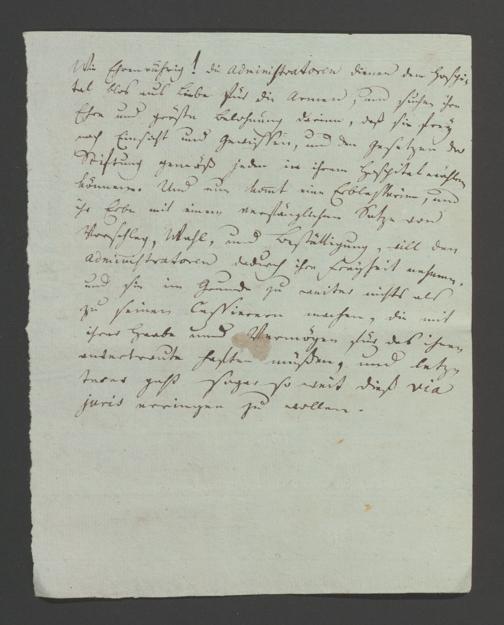 Wie Ehrenrührig! die Administratoren dienen dem Hospi-
tal blos aus Liebe für die Armen, und suchen ihre
Ehre und gröste Belohnung darinn, daß sie frey
nach Einsicht und Gewissen, und den Gesetzen der
Stiftung gemäß jeden in ihrem Hospital wählen
können. Und nun kommt eine Erblasserinn, und
ihr Erbe mit einem verfänglichen Satze von
Vorschlag, Wahl, und Bestättigung, will den
Administratoren dadurch ihre Freyheit nehmen,
und sie im Grunde zu weiter nichts als
zu seinen Cassierern machen, die mit
ihrer Haabe und Vermögen für das ihnen
anvertraute haften müßen, und letz-
terer geht sogar so weit dieß via
juris erringen zu wollen.